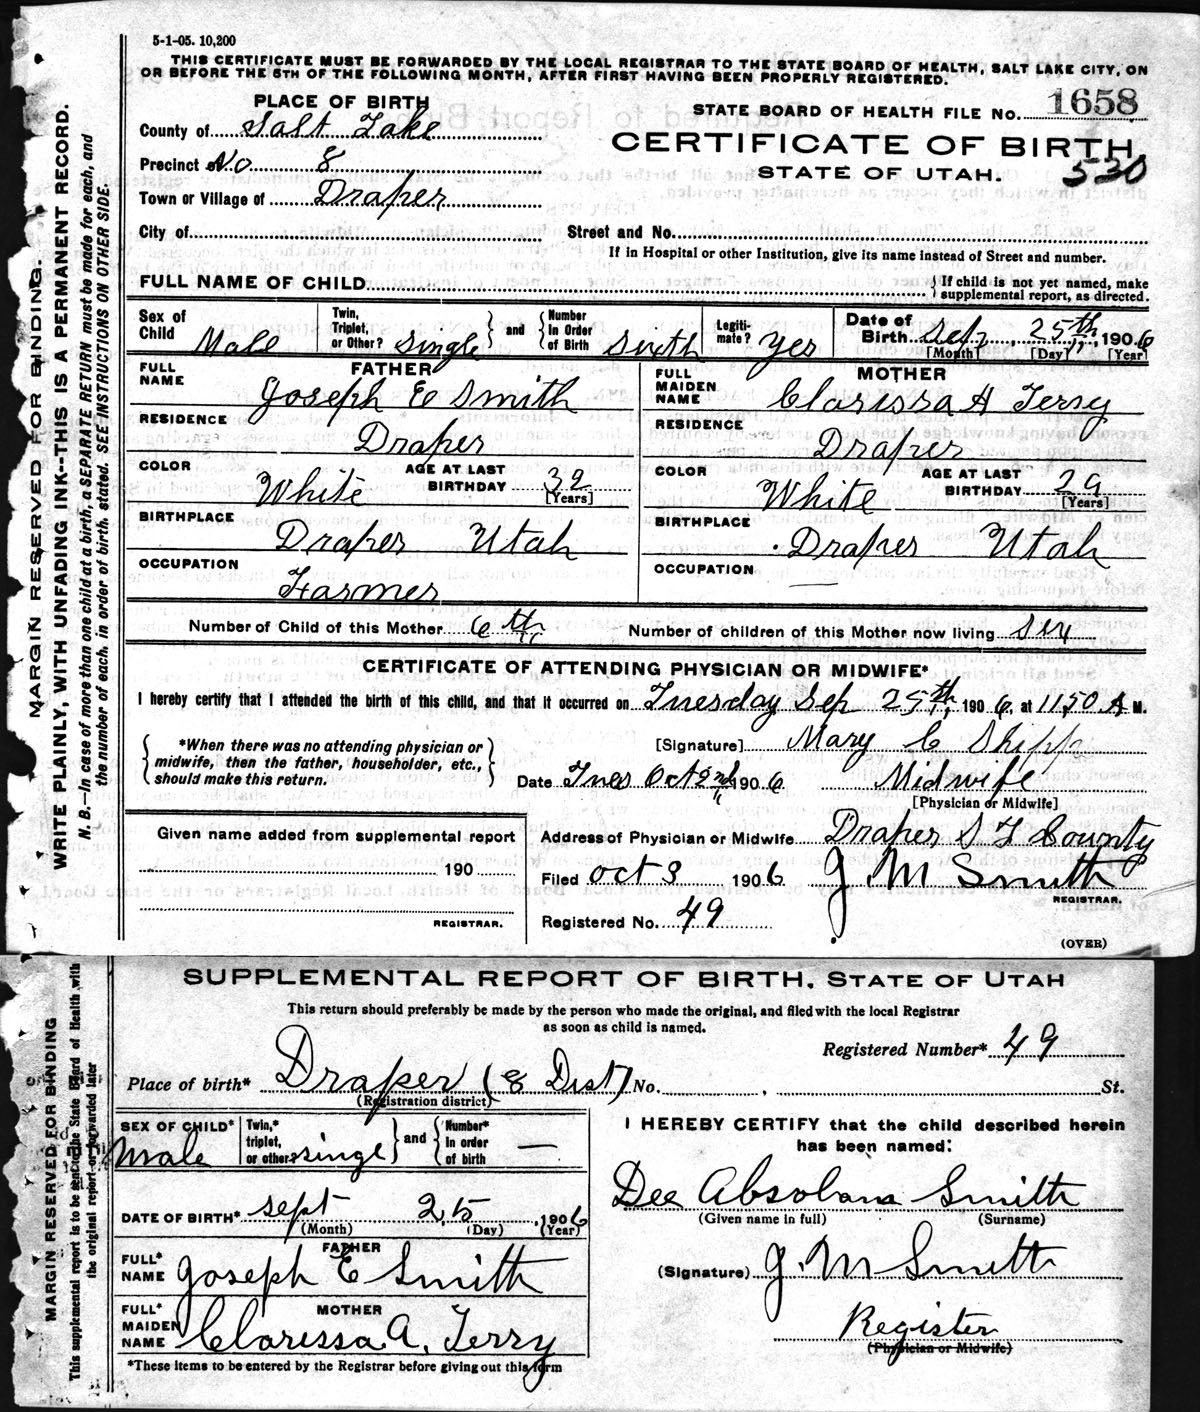 5-1-05. 10,200
THIS CERTIFICATE MUST BE FORWARDED BY THE LOCAL REGISTRAR TO THE STATE BOARD OF HEALTH, SALT LAKE CITY, ON
OR BEFORE THE 5TH OF THE FOLLOWING MONTH, AFTER FIRST HAVING BEEN PROPERLY REGISTERED.
PLACE OF BIRTH
STATE BOARD OF HEALTH FILE No. 1658
County of Salt Lake
CERTIFICATE OF BIRTH,
530
Precinct of No 8
STATE OF UTAH.
Town or Village of Draper
City of
Street and No.
If in Hospital or other Institution, give its name instead of Street and number.
FULL NAME OF CHILD
{If child is not yet named, make
supplemental report, as directed.
Sex of Child Male
Twin, Triplet, or Other? single } and { Number In Order of Birth Sixth
Legiti-mate? Yes
Date of Birth Sep, 25th, 1906
[Month] [Day] [Year]
FATHER
FULL NAME Joseph E Smith
RESIDENCE Draper
COLOR White
AGE AT LAST BIRTHDAY 32
[Years]
BIRTHPLACE Draper Utah
OCCUPATION Farmer
MOTHER
FULL MAIDEN NAME Clarissa A Terry
RESIDENCE Draper
COLOR White
AGE AT LAST BIRTHDAY 29
[Years]
BIRTHPLACE Draper Utah
OCCUPATION —
Number of Child of this Mother 6th
Number of children of this Mother now living Six
CERTIFICATE OF ATTENDING PHYSICIAN OR MIDWIFE*
I hereby certify that I attended the birth of this child, and that it occurred on Tuesday Sep 25th, 1906, at 11,50 A M.
{*When there was no attending physician or
midwife, then the father, householder, etc.,
should make this return.}
[Signature] Mary C Shipp
Date Tues Oct 2nd 1906
Midwife
[Physician or Midwife]
Given name added from supplemental report
190
REGISTRAR.
Address of Physician or Midwife Draper S L County
Filed Oct 3 1906
J. M Smith
REGISTRAR.
Registered No. 49
(OVER)
MARGIN RESERVED FOR BINDING.
WRITE PLAINLY, WITH UNFADING INK--THIS IS A PERMANENT RECORD.
N. B.—In case of more than one child at a birth, a SEPARATE RETURN must be made for each, and
the number of each, in order of birth, stated. SEE INSTRUCTIONS ON OTHER SIDE.
SUPPLEMENTAL REPORT OF BIRTH, STATE OF UTAH
This return should preferably be made by the person who made the original, and filed with the local Registrar
as soon as child is named.
Registered Number* 49
Place of birth* Draper (8 Dist) No. , St.
(Registration district)
SEX OF CHILD* Male
Twin,* triplet, or other single } and { Number* In order of birth —
DATE OF BIRTH* Sept 25, 1906
(Month) (Day) (Year)
FATHER
FULL* NAME Joseph E Smith
MOTHER
FULL* MAIDEN NAME Clarissa A. Terry
*These items to be entered by the Registrar before giving out this form
I HEREBY CERTIFY that the child described herein
has been named:
Dee Absolam Smith
(Given name in full) (Surname)
(Signature) J. M Smith
Register
(Physician or Midwife)
MARGIN RESERVED FOR BINDING
This supplemental report is to be sent to the State Board of Health with
the original report or forwarded later